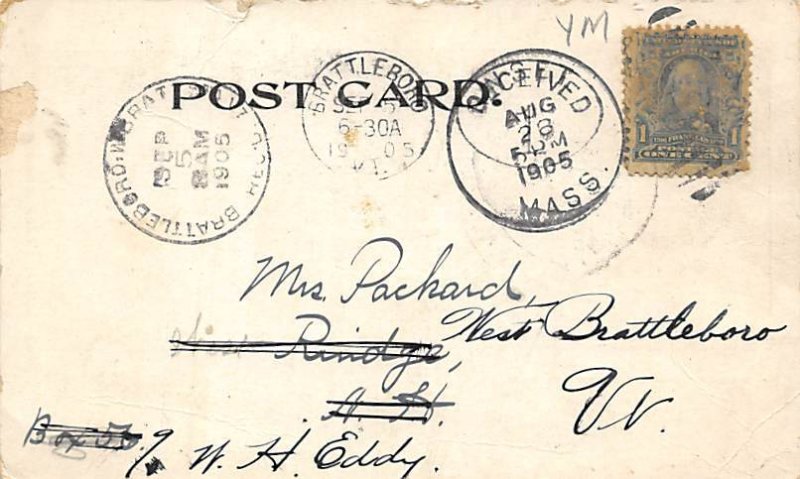 YM
POST CARD.
BRATTLEBORO
SEP 5
6-30A
1905
VT.
RECEIVED
AUG
28
5 PM
1905
MASS.
SEP
5
8AM
1905
BRATTLEBORO
REC'D.
1
POSTAGE
ONE CENT
1
Mrs. Packard,
Rindge,
West Brattleboro
N. H.
Vt.
Box 56
W. H. Eddy.